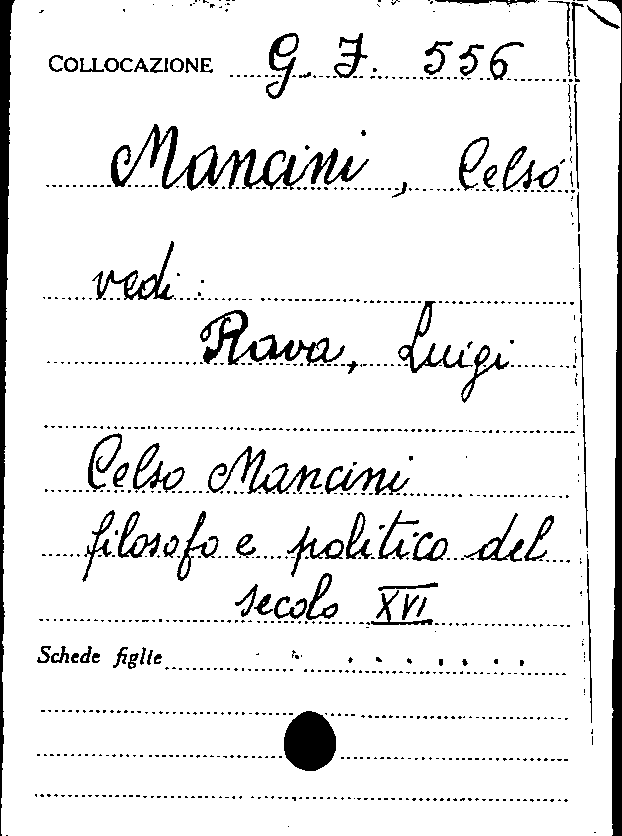 COLLOCAZIONE G. J. 556
Mancini, Celso
vedi:
Rava, Luigi
Celso Mancini
filosofo e politico del
secolo XVI
Schede figlie